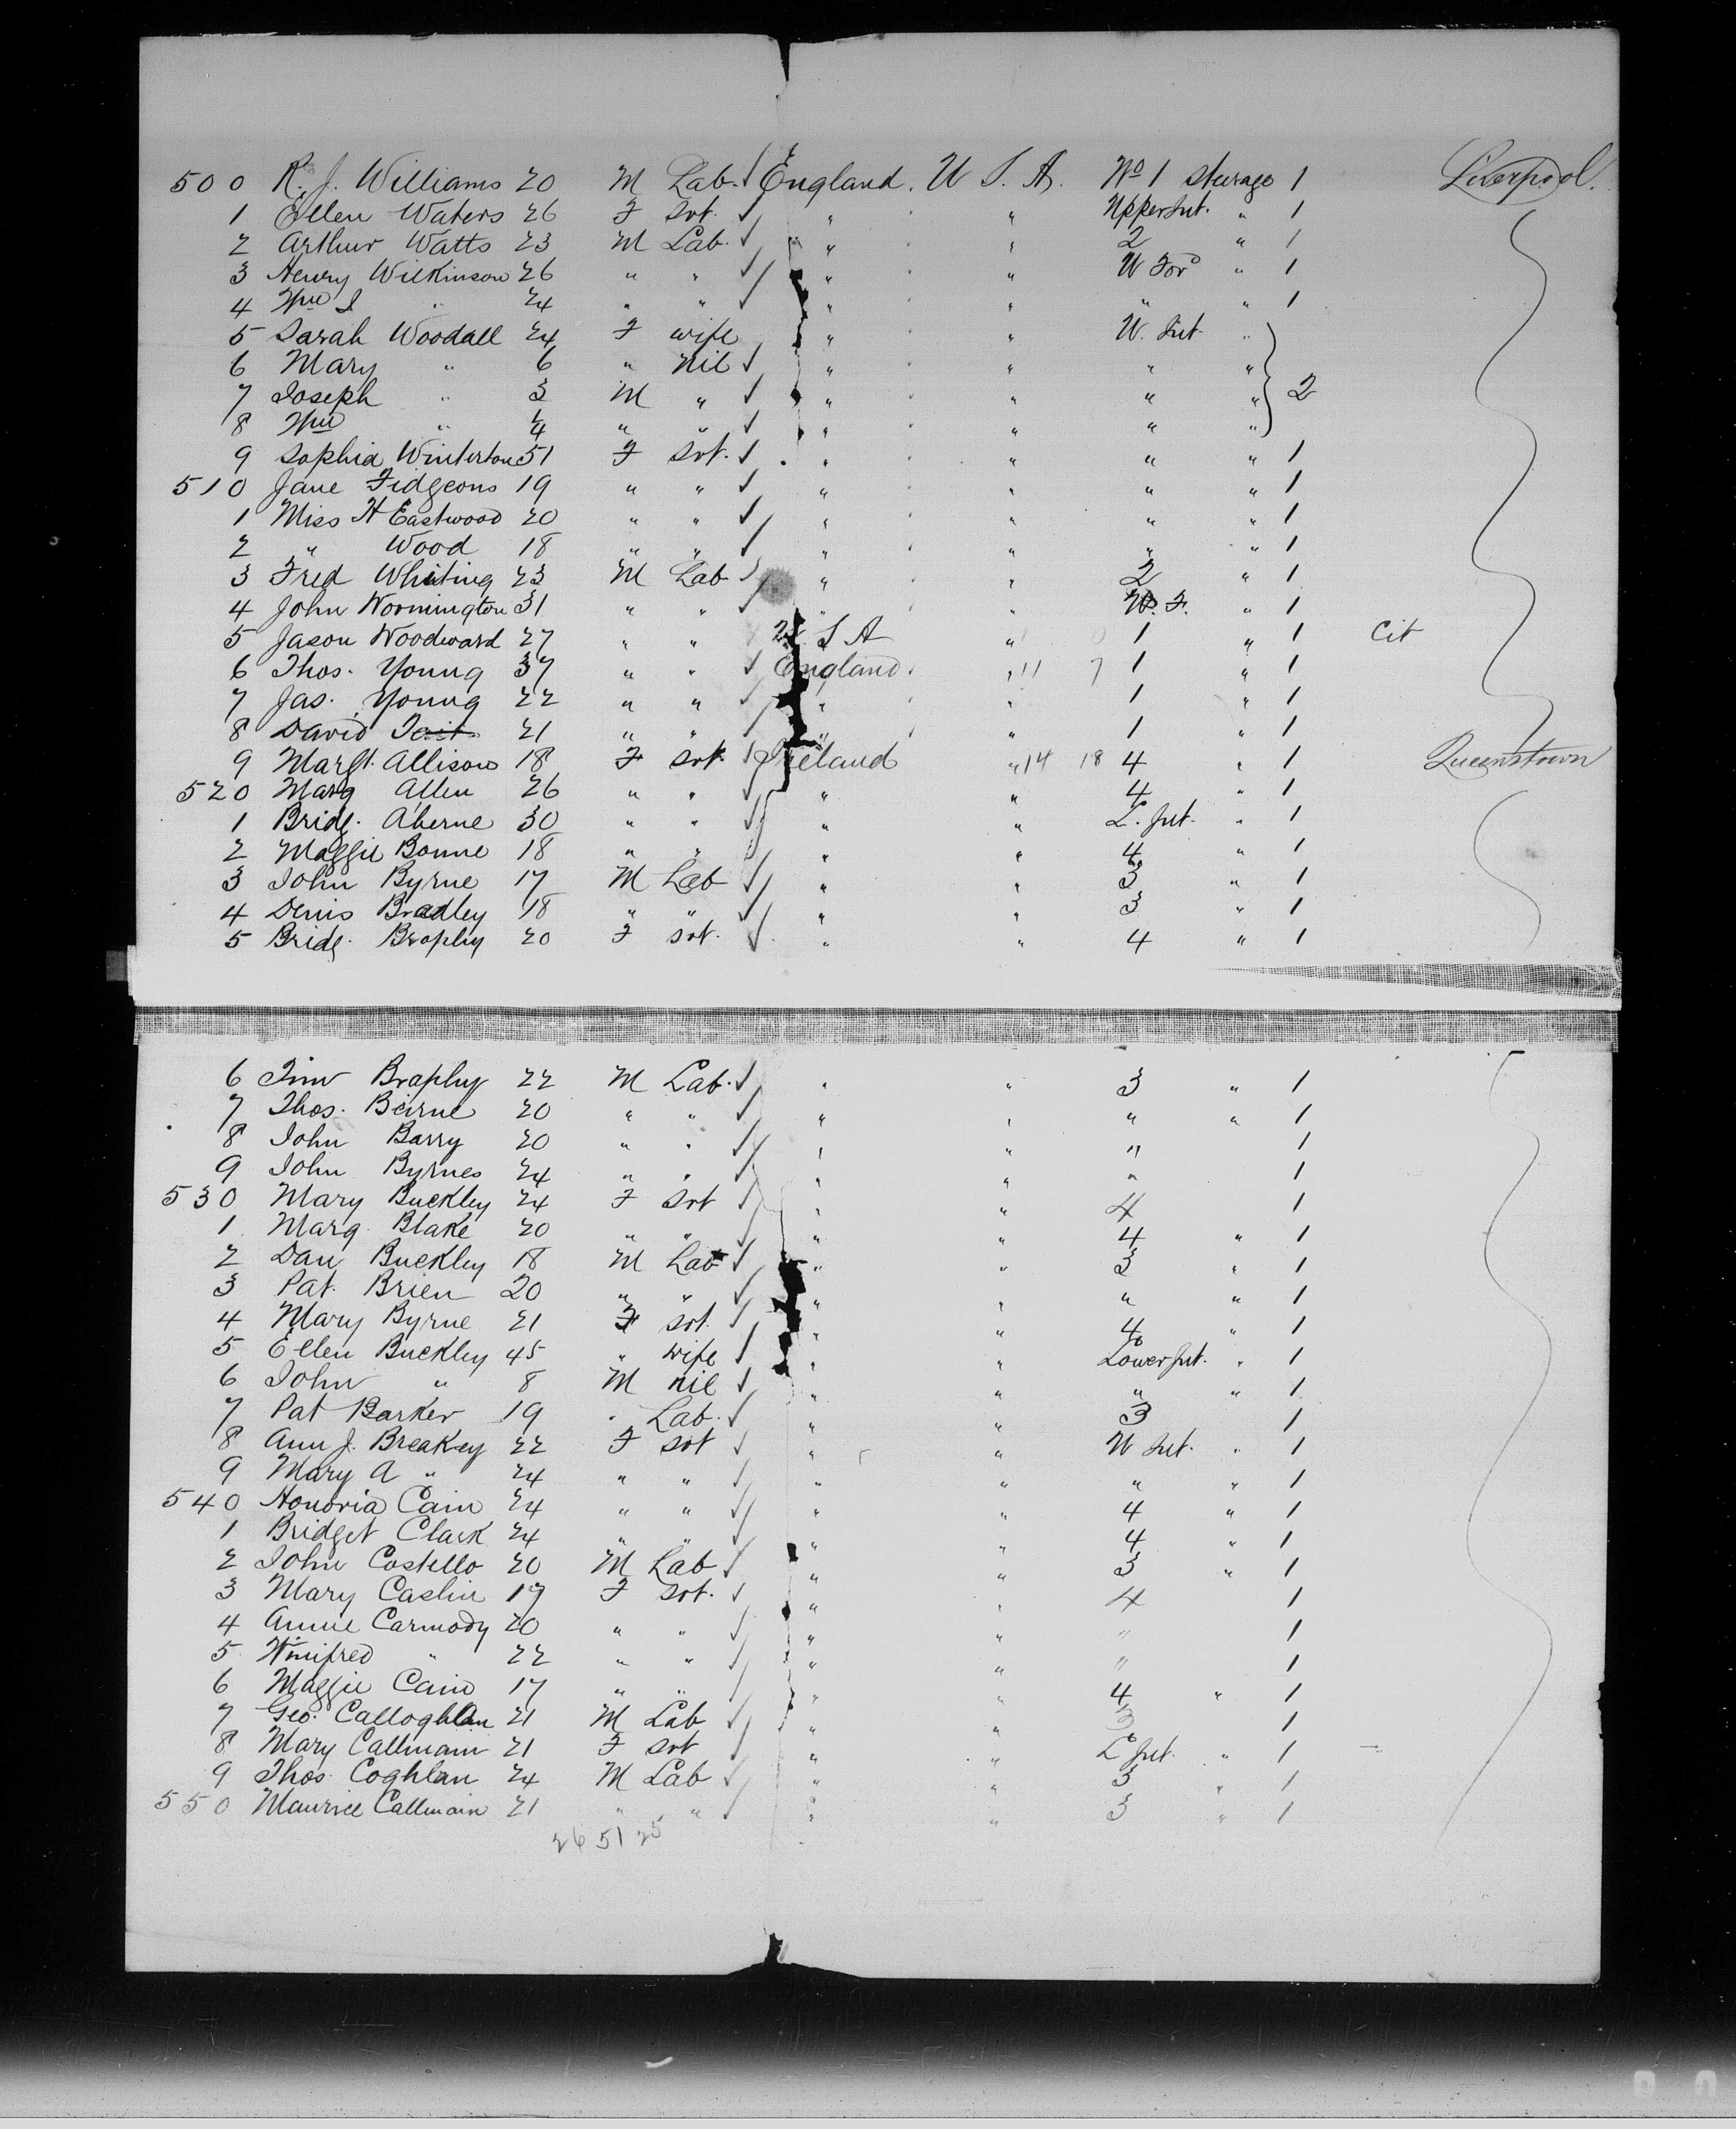 500 R. J. Williams 20 M Lab. England. U. S. A. No 1 Steerage 1 Liverpool.
1 Ellen Waters 26 F Svt. " " Upper Int. " 1
2 Arthur Watts 23 M Lab. " " 2 " 1
3 Henry Wilkinson 26 " " " " U For'd " 1
4 Wm J " 24 " " " " " " 1
5 Sarah Woodall 24 F wife " " U. Int. "
6 Mary " 6 " nil " " " "
7 Joseph " 3 M " " " " " 2
8 Wm " 1/4 " " " " " "
9 Sophia Winterton 51 F Svt. " " " " 1
510 Jane Fidgeons 19 " " " " " " 1
1 Miss H Eastwood 20 " " " " " " 1
2 " Wood 18 " " " " " " 1
3 Fred Whiting 23 M Lab " " 2 " 1
4 John Wormington 31 " " " " U. F. " 1
5 Jason Woodward 27 " " U S A " 1 " 1 Cit
6 Thos. Young 37 " " England. " 11 7 1 " 1
7 Jas. Young 22 " " " " 1 " 1
8 David Tait 21 " " " " 1 " 1
9 Margt. Allison 18 F Svt. Ireland " 14 18 4 " 1 Queenstown
520 Marg Allen 26 " " " " 4 " 1
1 Bridg. Aherne 30 " " " " L. Int. " 1
2 Maggie Bonne 18 " " " " 4 " 1
3 John Byrne 17 M Lab " " 3 " 1
4 Denis Bradley 18 " " " " 3 " 1
5 Bridg. Brophy 20 F Svt. " " 4 " 1
6 Jim Brophy 22 M Lab. " " 3 " 1
7 Thos. Beirne 20 " " " " " " 1
8 John Barry 20 " " " " " 1
9 John Byrnes 24 " " " " " 1
530 Mary Buckley 24 F Svt " " 4 1
1 Marg. Blake 20 " " " " 4 " 1
2 Dan Buckley 18 M Lab " " 3 " 1
3 Pat. Brien 20 " " " " " " 1
4 Mary Byrne 21 F Svt. " " 4 " 1
5 Ellen Buckley 45 " wife " " Lower Int. " 1
6 John " 8 M nil " " " " 1
7 Pat Barker 19 " Lab. " " 3 1
8 Ann J. Breakey 22 F Svt " " U Int. " 1
9 Mary A " 24 " " " " " " 1
540 Honoria Cain 24 " " " " 4 " 1
1 Bridget Clark 24 " " " " 4 " 1
2 John Costello 20 M Lab " " 3 " 1
3 Mary Caslin 19 F Svt. " " 4 1
4 Annie Carmody 20 " " " " " 1
5 Winifred " 22 " " " " " 1
6 Maggie Cain 17 " " " " 4 " 1
7 Geo. Calloghlan 21 M Lab " " 3 1
8 Mary Callinain 21 F Svt " " L Int. " 1
9 Thos. Coghlan 24 M Lab " " 3 " 1
550 Maurice Callinain 21 " " " " 3 " 1
26 51 25